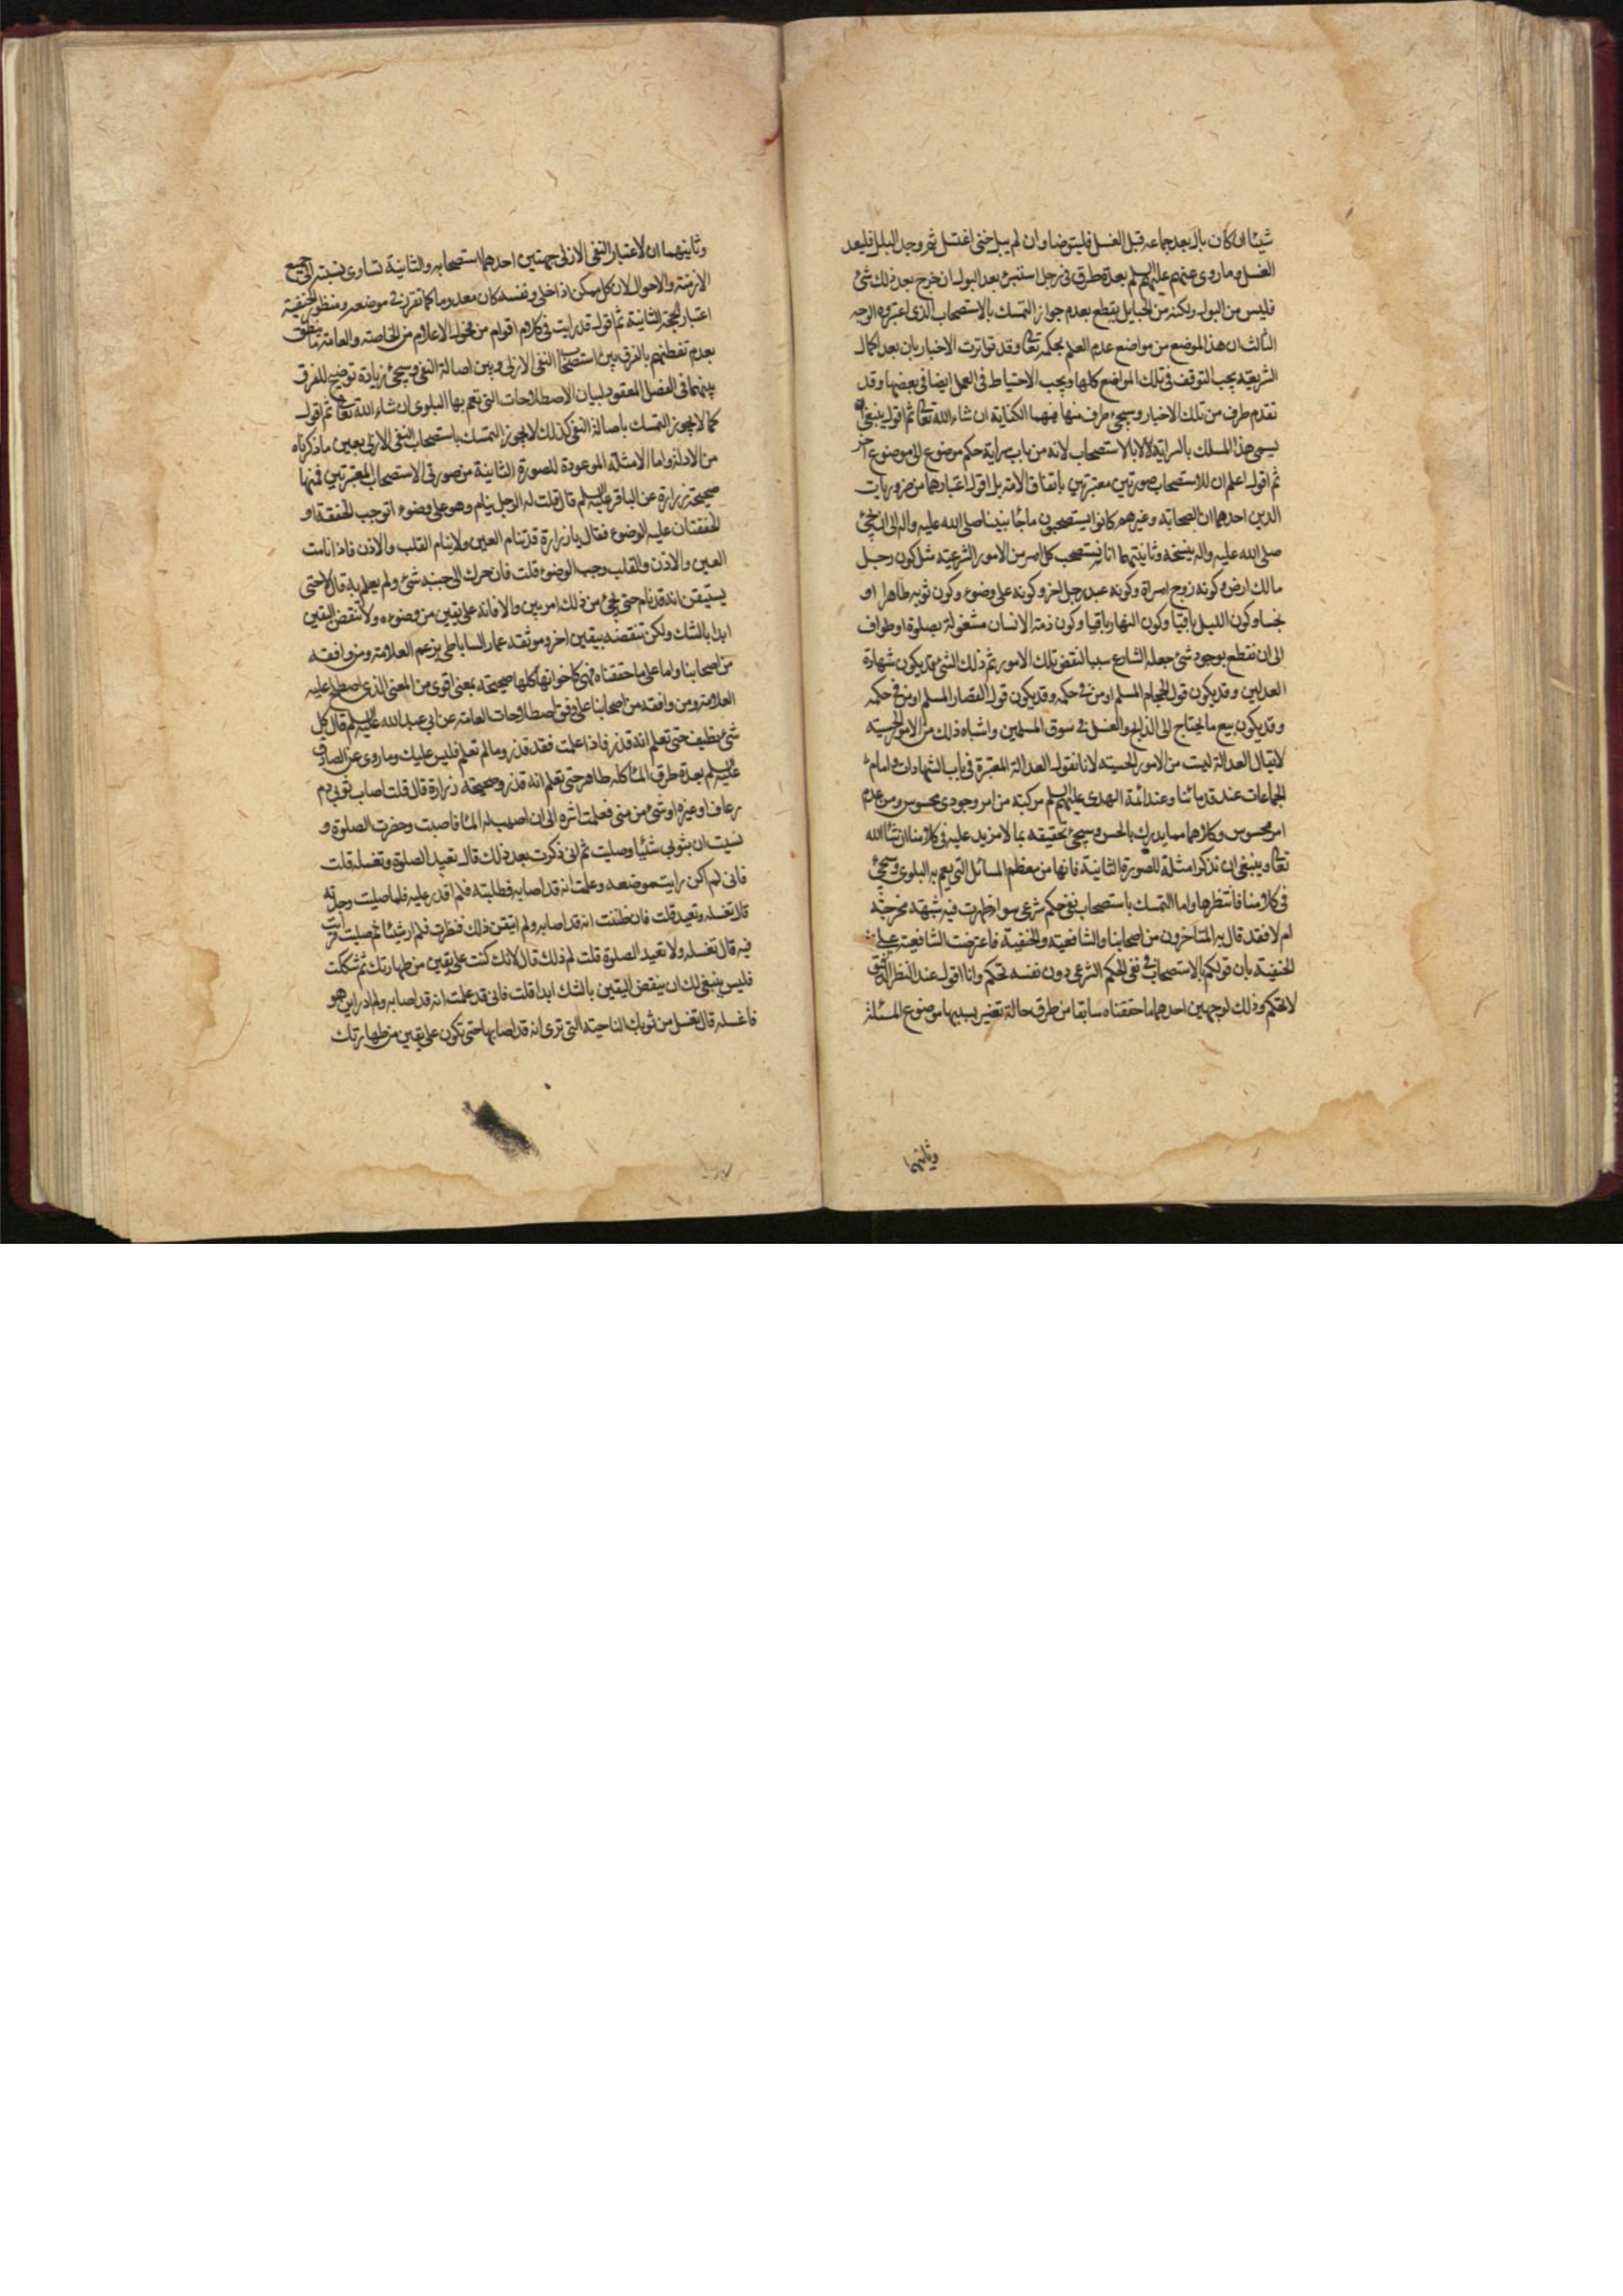 شيئا ان كان بال بعد جماعه قبل الغسل فليتوضا وان لم يبل حتى اغتسل ثم وجد البلل فليعد
الغسل وما روى عنهم عليهم السلم بعدة طرق فى رجل استبرئ بعد البول ان خرج بعد ذلك شئ
فليس من البول ولكنه من الحبايل يقطع بعدم جواز التمسك بالاستصحاب الذى اعتبروه الوجه
الثالث ان هذا الموضع من مواضع عدم العلم بحكمه تعالى وقد تواترت الاخبار بان بعد اكمال
الشريعة يجب التوقف فى تلك المواضع كلها ويجب الاحتياط فى العمل ايضا فى بعضها وقد
تقدم طرف من تلك الاخبار وسيجئ طرف منها فيهما الكفاية ان شاء الله تعالى ثم اقول ينبغى ان
يسمى هذا المسلك بالسراية لا بالاستصحاب لانه من باب سراية حكم موضوع الى موضوع اخر
ثم اقول اعلم ان للاستصحاب صورتين معتبرتين باتفاق الامة بل اقول اعتبارهما من ضروريات
الدين احدهما ان الصحابة وغيرهم كانوا يستصحبون ما جاء نبينا صلى الله عليه واله الى ان يجئ
صلى الله عليه واله بنسخه وثانيتهما انا نستصحب كل امر من الامور الشرعية مثل كون رجل
مالك ارض وكونه زوج امراة وكونه عبد رجل اخر وكونه على وضوء وكون ثوبه طاهرا او
نجسا وكون الليل باقيا وكون النهار باقيا وكون ذمة الانسان مشغولة بصلوة او طواف
الى ان نقطع بوجود شئ جعله الشارع سببا لنقض تلك الامور ثم ذلك الشئ قد يكون شهادة
العدلين وقد يكون قول الحجام المسلم او من فى حكمه وقد يكون قول القصار المسلم او من فى حكمه
وقد يكون بيع ما يحتاج الى الذبح والغسل فى سوق المسلمين واشباه ذلك من الامور الحسية
لا يقال العدالة ليست من الامور الحسية لانا نقول العدالة المعتبرة فى باب الشهادات وامام
الجماعات عند قدمائنا وعند ائمة الهدى عليهم السلم مركبة من امر وجودى محسوس ومن عدم
امر محسوس وكلاهما مما يدرك بالحس وسيجئ تحقيقه بما لا مزيد عليه فى كلامنا ان شاء الله
تعالى وينبغى ان نذكر امثلة للصورة الثانية فانها من معظم المسائل التى يعم به البلوى وسيجئ
فى كلامنا فانتظرها واما التمسك باستصحاب نفى حكم شرعى سواء ظهرت فيه شبهة مخرجة
ام لا فقد قال به المتاخرون من اصحابنا والشافعية والحنفية فاعترضت الشافعية على
الحنفية بان قولكم بالاستصحاب فى نفى الحكم الشرعى دون نفسه تحكم وانا اقول عند النظر الدقيق
لا تحكم وذلك لوجهين احدهما ما حققناه سابقا من طرق حالة تغير بسببها موضوع المسئلة
وثانيهما
وثانيهما ان لاعتبار النفى الازلى جهتين احدهما استصحابه والثانية تساوى نسبته الى جميع
الازمنة والاحوال لان كل ممكن اذا خلى ونفسه كان معدوما كما تقرر فى موضعه ومنظور الحنفية
اعتبار الجهة الثانية ثم اقول قد رايت فى كلام اقوام من فحول الاعلام من الخاصة والعامة ما ينطق
بعدم تفطنهم بالفرق بين استصحاب النفى الازلى وبين اصالة النفى وسيجئ زيادة توضيح للفرق
بينهما فى الفصل المعقود لبيان الاصطلاحات التى تعم بها البلوى ان شاء الله تعالى ثم اقول
كما لا يجوز التمسك باصالة النفى كذلك لا يجوز التمسك باستصحاب النفى الازلى بعين ما ذكرناه
من الادلة واما الامثلة الموعودة للصورة الثانية من صورتى الاستصحاب المعتبرتين فمنها
صحيحة زرارة عن الباقر عليه السلم قال قلت له الرجل ينام وهو على وضوء اتوجب الخفقة او
الخفقتان عليه الوضوء فقال يا زرارة قد تنام العين ولا ينام القلب والاذن فاذا نامت
العين والاذن والقلب وجب الوضوء قلت فان حرك الى جنبه شئ ولم يعلم به قال لا حتى
يستيقن انه قد نام حتى يجئ من ذلك امر بين والا فانه على يقين من وضوءه ولا تنقض اليقين
ابدا بالشك ولكن تنقضه بيقين اخر وموثقة عمار الساباطى بزعم العلامة ومن وافقه
من اصحابنا واما على ما حققناه فهى كاخواتها كلها صحيحة بمعنى اقوى من المعنى الذى اصطلح عليه
العلامة ومن وافقه من اصحابنا على وفق اصطلاحات العامة عن ابى عبد الله عليه السلم قال كل
شئ نظيف حتى تعلم انه قذر فاذا علمت فقد قذر وما لم تعلم فليس عليك وما روى عن الصادق
عليه السلم بعدة طرق الماء كله طاهر حتى تعلم انه قذر وصحيحة زرارة قال قلت اصاب ثوبى دم
رعاف او غيره او شئ من منى فعلمت اثره الى ان اصيب له الماء فاصبت وحضرت الصلوة و
نسيت ان بثوبى شئيا وصليت ثم انى ذكرت بعد ذلك قال تعيد الصلوة وتغسله قلت
فانى لم اكن رايت موضعه وعلمت انه قد اصابه فطلبته فلم اقدر عليه فلما صليت وجدته
قال تغسله وتعيد قلت فان ظننت انه قد اصابه ولم اتيقن ذلك فنظرت فلم ار شيئا ثم صليت فرايت
فيه قال تغسله ولا تعيد الصلوة قلت لم ذلك قال لانك كنت على يقين من طهارتك ثم شككت
فليس ينبغى لك ان ينقض اليقين بالشك ابدا قلت فانى قد علمت انه قد اصابه ولم ادر اين هو
فاغسله قال تغسل من ثوبك الناحية التى ترى انه قد اصابها حتى تكون على يقين من طهارتك